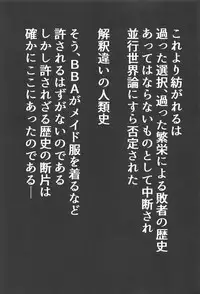 これより紡がれるは
過った選択、過った繁栄による敗者の歴史
あってはならないものとして中断され
並行世界論にすら否定された
解釈違いの人類史
そう、BBAがメイド服を着るなど
許されるはずがないのである
しかし許されざる歴史の断片は
確かにここにあったのである―